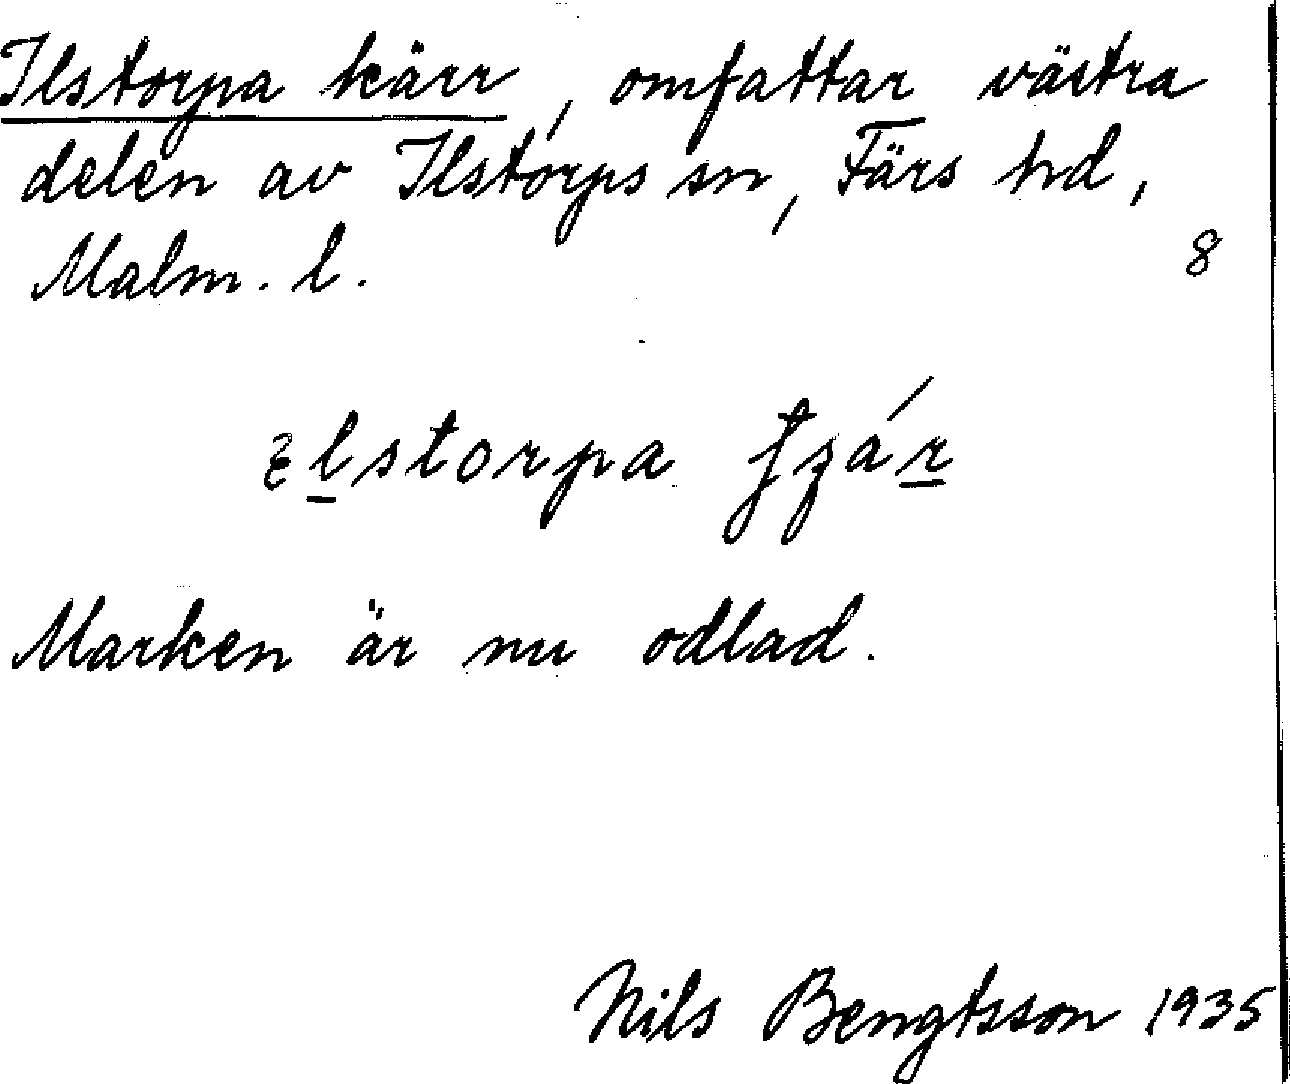 Ilstorpa kärr, omfattar västra
delen av Ilstorps sn, Färs hd,
Malm. l.
8
Marken är nu odlad.
Nils Bengtsson 1935